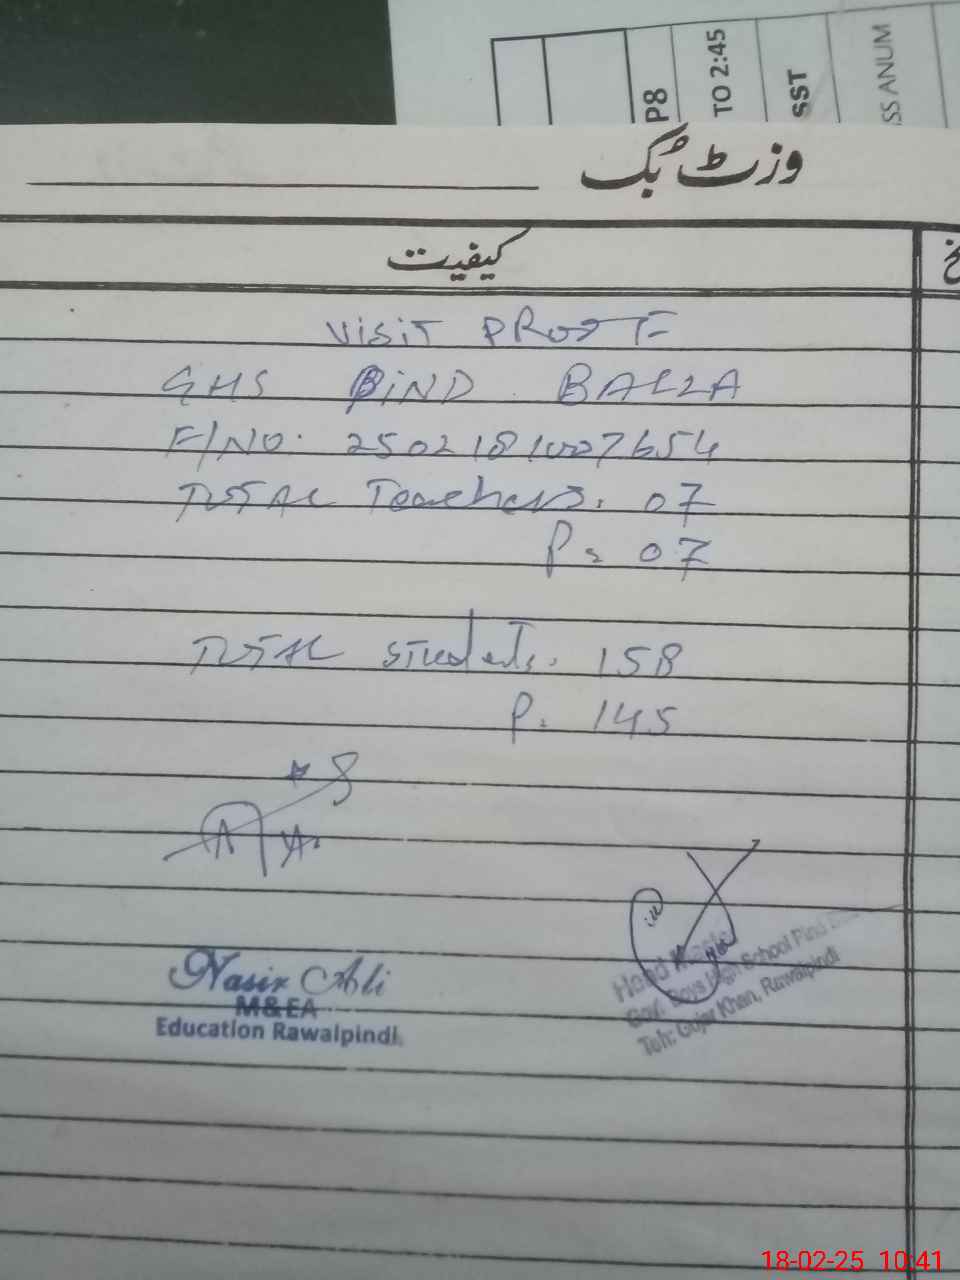 P8
TO 2:45
SST
SS ANUM
وزٹ بک
کیفیت
VISIT PROOF
GHS PIND BALLA
F/NO. 2502181007654
TOTAL Teachers. 07
P= 07
TOTAL students. 158
P. 145
Nasir Ali
M&EA
Education Rawalpindi.
Head Master
Gov. Boys High School Pind
Teh: Gujar Khan, Rawalpindi
18-02-25 10:41